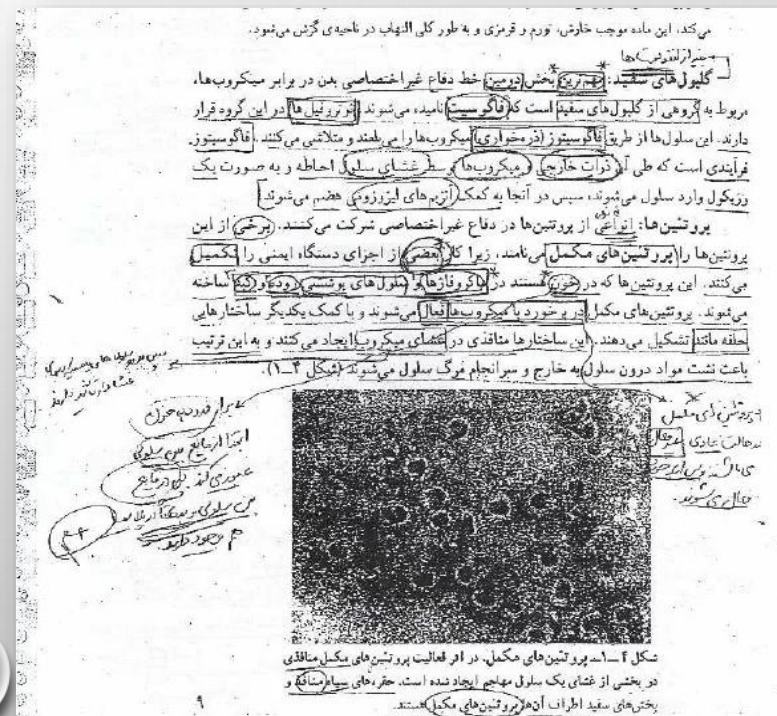 می‌کند، این ماده موجب خارش، تورم و قرمزی و به طور کلی التهاب در ناحیه‌ی گزش می‌شود.
گلبول‌های سفید: مهم‌ترین بخش دومین خط دفاع غیراختصاصی بدن در برابر میکروب‌ها،
مربوط به گروهی از گلبول‌های سفید است که فاگوسیت نامیده، می‌شوند نوتروفیل‌ها در این گروه قرار
دارند. این سلول‌ها از طریق فاگوسیتوز (ذره‌خواری) میکروب‌ها را می‌بلعند و متلاشی می‌کنند. فاگوسیتوز
فرآیندی است که طی آن ذرات خارجی و میکروب‌ها توسط غشای سلول احاطه و به صورت یک
وزیکول وارد سلول می‌شوند، سپس در آنجا به کمک آنزیم‌های لیزوزومی هضم می‌شوند.
پروتئین‌ها: انواعی از پروتئین‌ها در دفاع غیراختصاصی شرکت می‌کنند. برخی از این
پروتئین‌ها را پروتئین‌های مکمل می‌نامند، زیرا کار بعضی از اجزای دستگاه ایمنی را تکمیل
می‌کنند. این پروتئین‌ها که در خون هستند در ماکروفاژها و سلول‌های پوششی روده و کبد ساخته
می‌شوند. پروتئین‌های مکمل در برخورد با میکروب‌ها فعال می‌شوند و با کمک یکدیگر ساختارهایی
حلقه مانند تشکیل می‌دهند. این ساختارها منافذی در غشای میکروب ایجاد می‌کنند و به این ترتیب
باعث نشت مواد درون سلول به خارج و سرانجام مرگ سلول می‌شوند (شکل ۴ــ۱).
پروتئین های مکمل
در حالت عادی غیرفعال
فعال می شوند.
ابتدا از مایع بین سلولی
عبور می کند بل در مایع
هم وجود دارند.
شکل ۴ــ۱ــ پروتئین‌های مکمل. در اثر فعالیت پروتئین‌های مکمل منافذی
در بخشی از غشای یک سلول مهاجم ایجاد شده است. حفره‌های سیاه منافذ و
بخش‌های سفید اطراف آن‌ها پروتئین‌های مکمل هستند.
۹